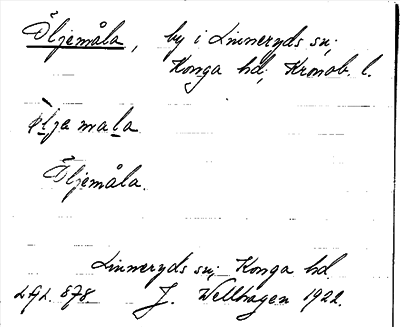 Öljemåla, by i Linneryds sn;
Konga hd, Kronob. l.
Öljemåla.
Linneryds sn; Konga hd.
J. Wellhagen 1922.